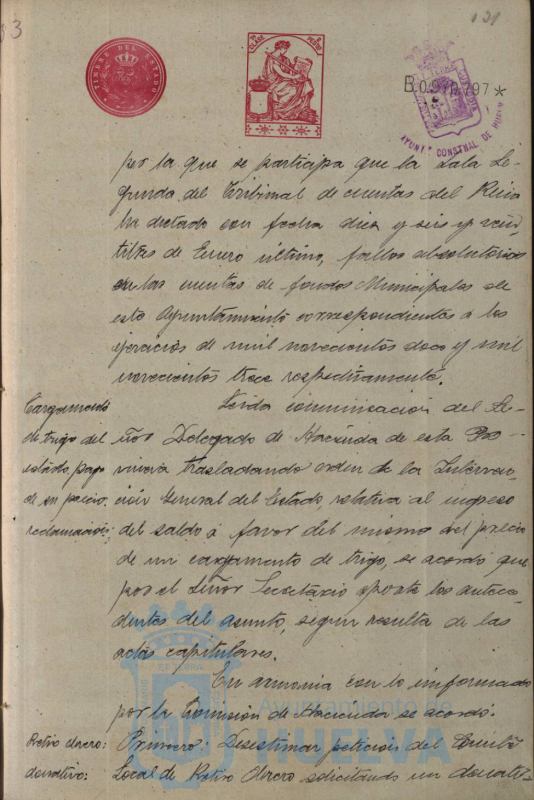 53
121
TIMBRE DEL ESTADO
CLASE
B.0.970.797*
AYUNT CONSTNAL DE HUELVA
por la que se participa que la Sala Se-
gunda del Tribunal de cuentas del Reino
ha dictado con fecha diez y seis y vein-
titres de Enero último, fallos absolutorios
en las cuentas de fondos Municipales de
este Ayuntamiento correspondientes á los
ejercicios de mil novecientos doce y mil
novecientos trece respectivamente.
Cargamento
de trigo del
estado, pago
de su precio.
reclamación:
Leida comunicacion del Se-
ñor Delegado de Hacienda de esta Pro-
vincia trasladando orden de la Interven-
ción General del Estado, relativa al ingreso
del saldo á favor del mismo del precio
de un cargamento de trigo, se acordó que
por el Señor Secretario aporte los antece-
dentes del asunto, segun resulta de las
actas capitulares.
En armonia con lo informado
por la Comision de Hacienda se acordó:
Retiro obrero:
donativo:
Primero: Desestimar peticion del Comité
Local de Retiro Obrero solicitando un donati-
Ayuntamiento de
HUELVA